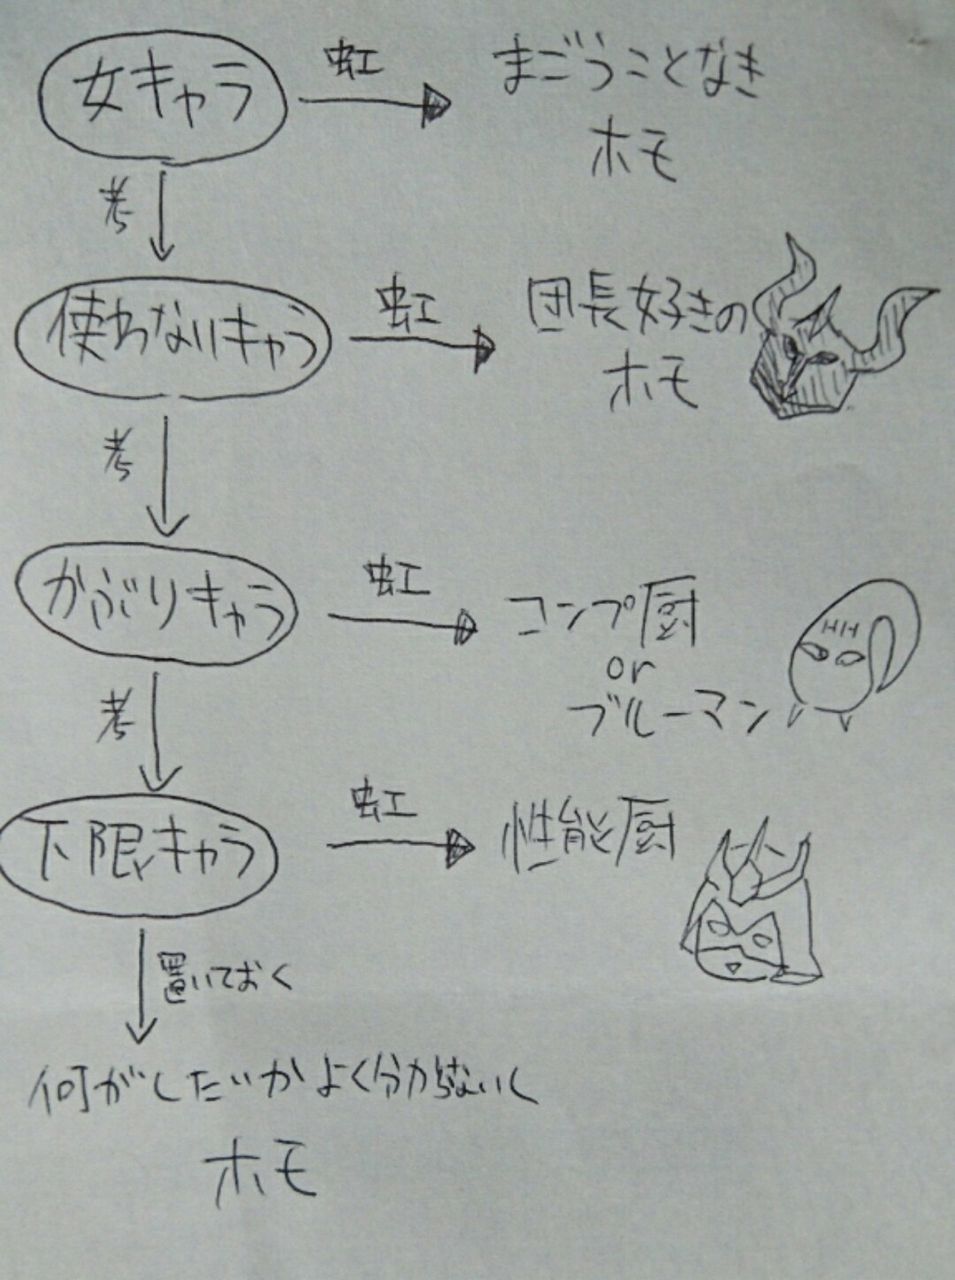 女キャラ
虹
まごうことなき
ホモ
考
使わないキャラ
虹
団長好きの
ホモ
考
かぶりキャラ
虹
コンプ厨
or
ブルーマン
考
下限キャラ
虹
性能厨
置いておく
何がしたいかよく分からないし
ホモ